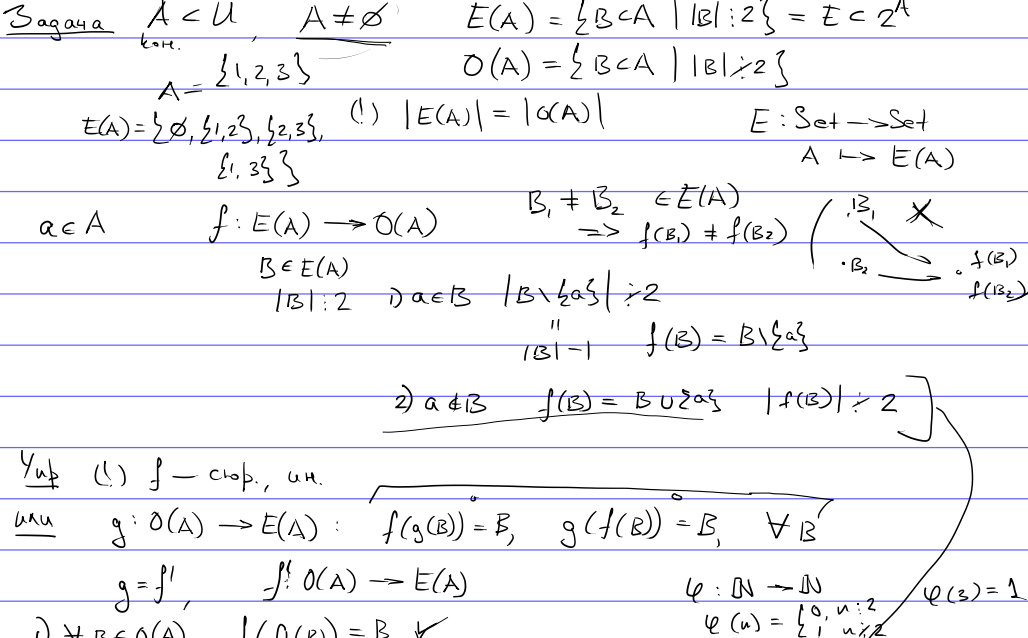 Задача A ⊂ U, A ≠ ∅ E(A) = {B⊂A | |B|⋮2} = E ⊂ 2^A
кон.
A = {1,2,3} O(A) = {B⊂A | |B|⋮̸2}
E(A) = {∅, {1,2}, {2,3}, {1,3}} (!) |E(A)| = |O(A)| E : Set → Set
A ↦ E(A)
a ∈ A f : E(A) → O(A) B₁ ≠ B₂ ∈ E(A)
⇒ f(B₁) ≠ f(B₂)
·B₁
·B₂ · f(B₁)
f(B₂)
B ∈ E(A)
|B|⋮2 1) a∈B |B\{a}| ⋮̸2
||
|B|-1 f(B) = B\{a}
2) a∉B f(B) = B∪{a} |f(B)| ⋮̸ 2
Упр (!) f — сюр., ин.
или g : O(A) → E(A) : f(g(B)) = B, g(f(B)) = B, ∀B
g = f', f' : O(A) → E(A)
φ : ℕ → ℕ φ(3) = 1
φ(n) = {0, n⋮2
1, n⋮̸2
1) ∀B∈O(A) f(g(B)) = B ✓